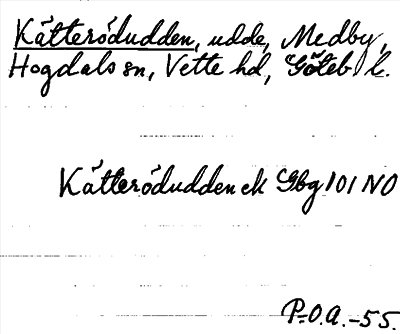 Kåtterödudden, udde, Medby,
Hogdals sn, Vette hd, Göteb l.
Kåtterödudden ek Gbg 101 NO
P.O.A. -55.